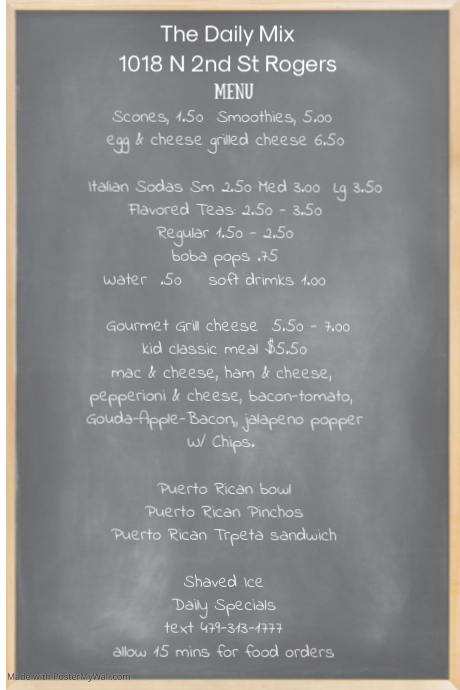 The Daily Mix
1018 N 2nd St Rogers
MENU
Scones, 1.50 Smoothies, 5.00
egg & cheese grilled cheese 6.50
Italian Sodas Sm 2.50 Med 3.00 Lg 3.50
Flavored Teas 2.50 - 3.50
Regular 1.50 - 2.50
boba pops .75
water .50 soft drimks 1.00
Gourmet Grill cheese 5.50 - 7.00
kid classic meal $5.50
mac & cheese, ham & cheese,
pepperioni & cheese, bacon-tomato,
Gouda-Apple-Bacon,, jalapeno popper
W/ Chips.
Puerto Rican bowl
Puerto Rican Pinchos
Puerto Rican Trpeta sandwich
Shaved Ice
Daily Specials
text 479-313-1777
allow 15 mins for food orders
Made with PosterMyWall.com